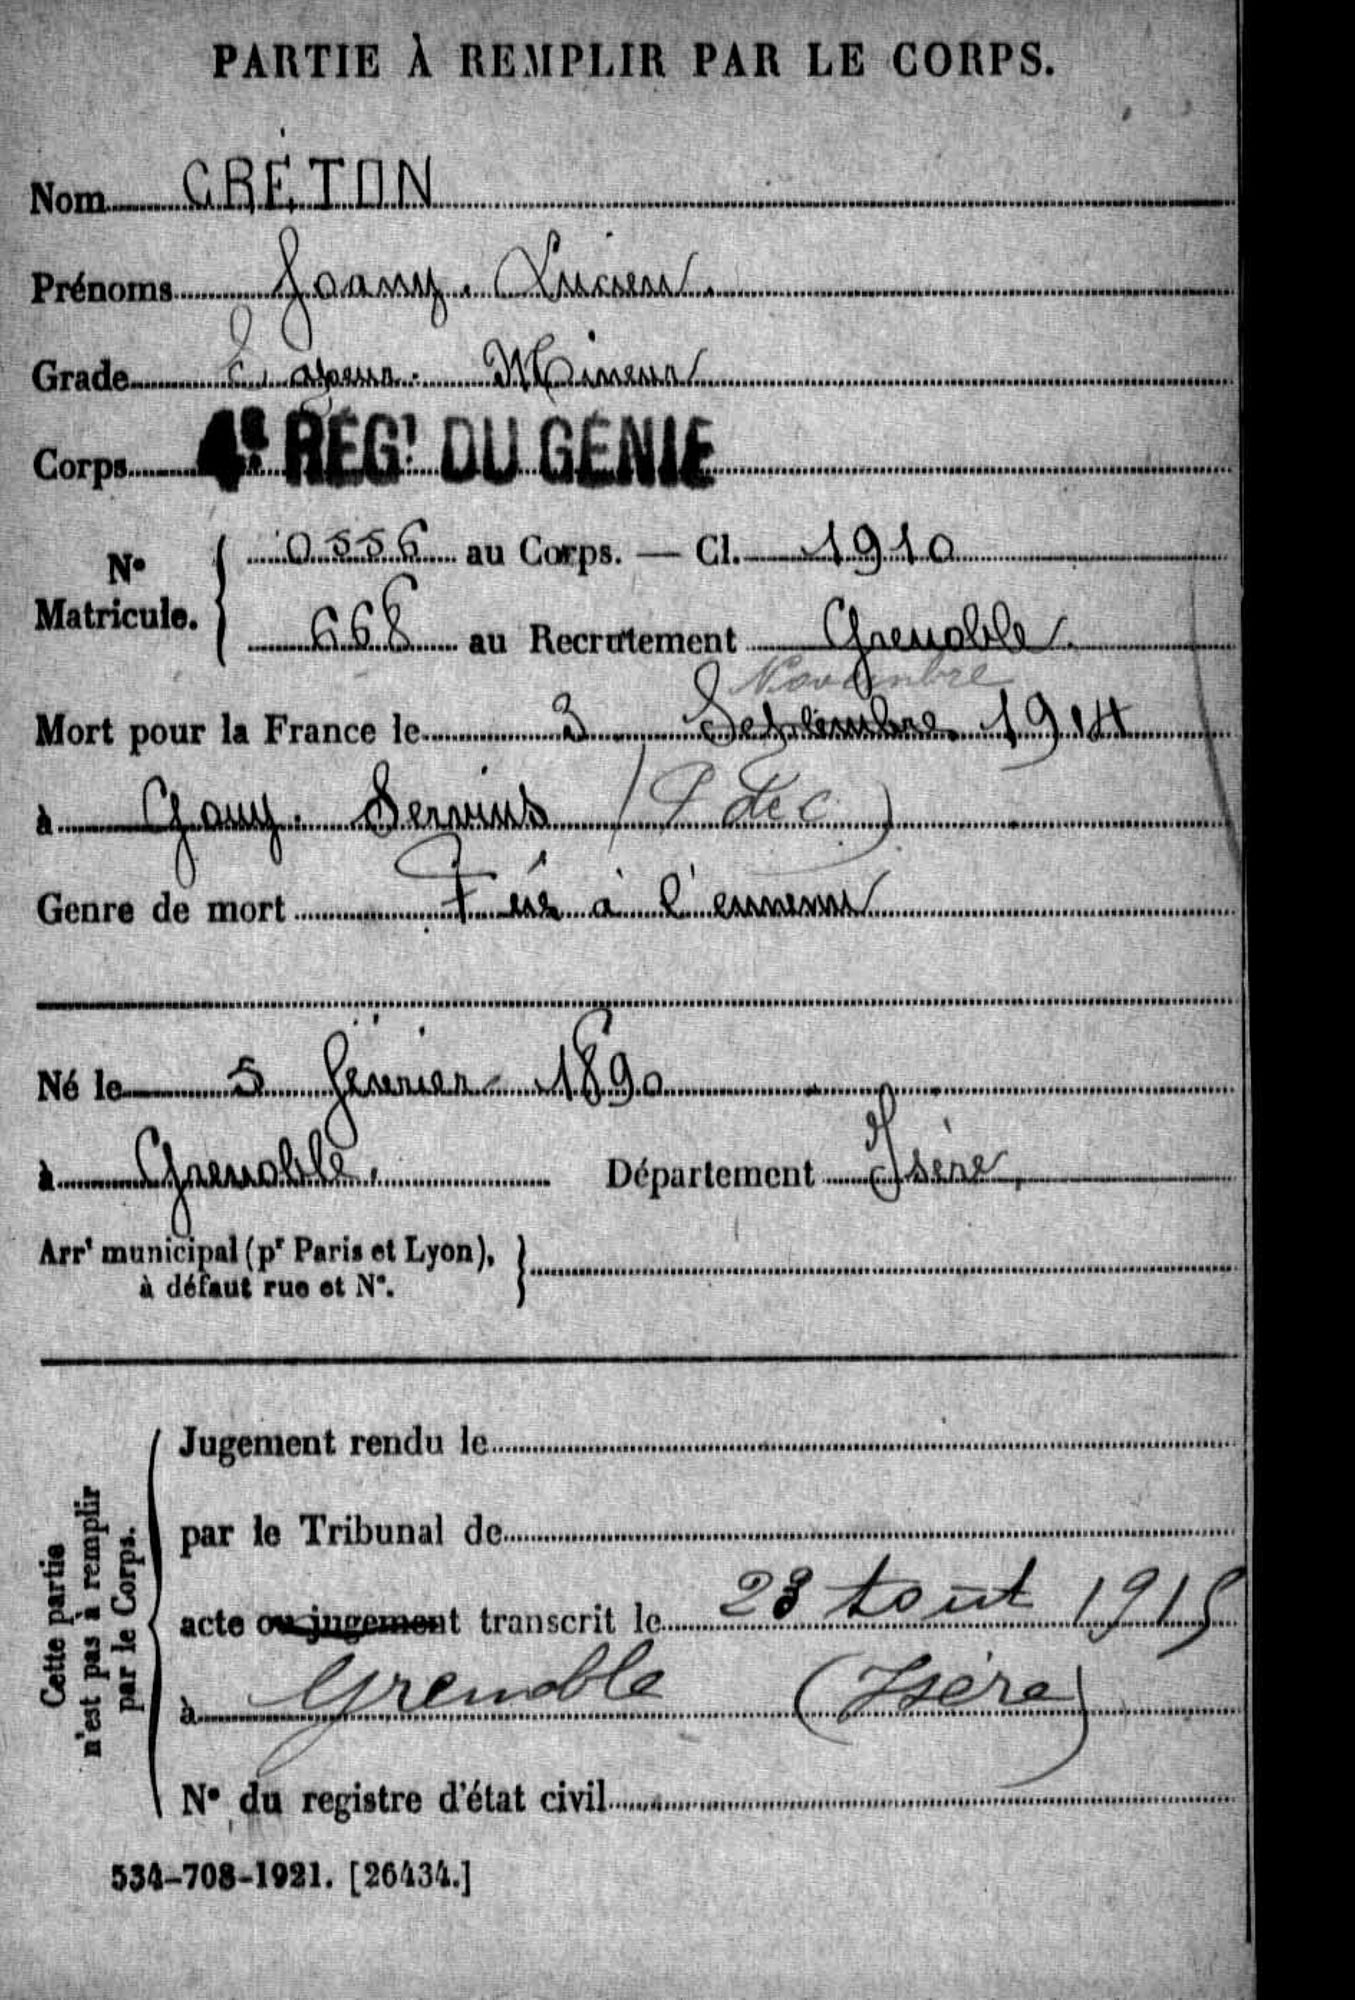 PARTIE À REMPLIR PAR LE CORPS.
Nom CRÉTON
Prénoms Joany. Lucien.
Grade Sapeur. Mineur
Corps 4e RÉGt DU GÉNIE
No Matricule. { 0556 au Corps. — Cl. 1910
668 au Recrutement Grenoble.
Novembre
Mort pour la France le 3 Septembre 1914
à Gouy. Servins (P de C)
Genre de mort Tué à l'ennemi
Né le 5 février 1890
à Grenoble. Département Isère,
Arrt municipal (pr Paris et Lyon), }
à défaut rue et No.
Cette partie n'est pas à remplir par le Corps.
Jugement rendu le
par le Tribunal de
acte ou jugement transcrit le 23 Aout 1915
à Grenoble (Isère)
No du registre d'état civil
534-708-1921. [26434.]